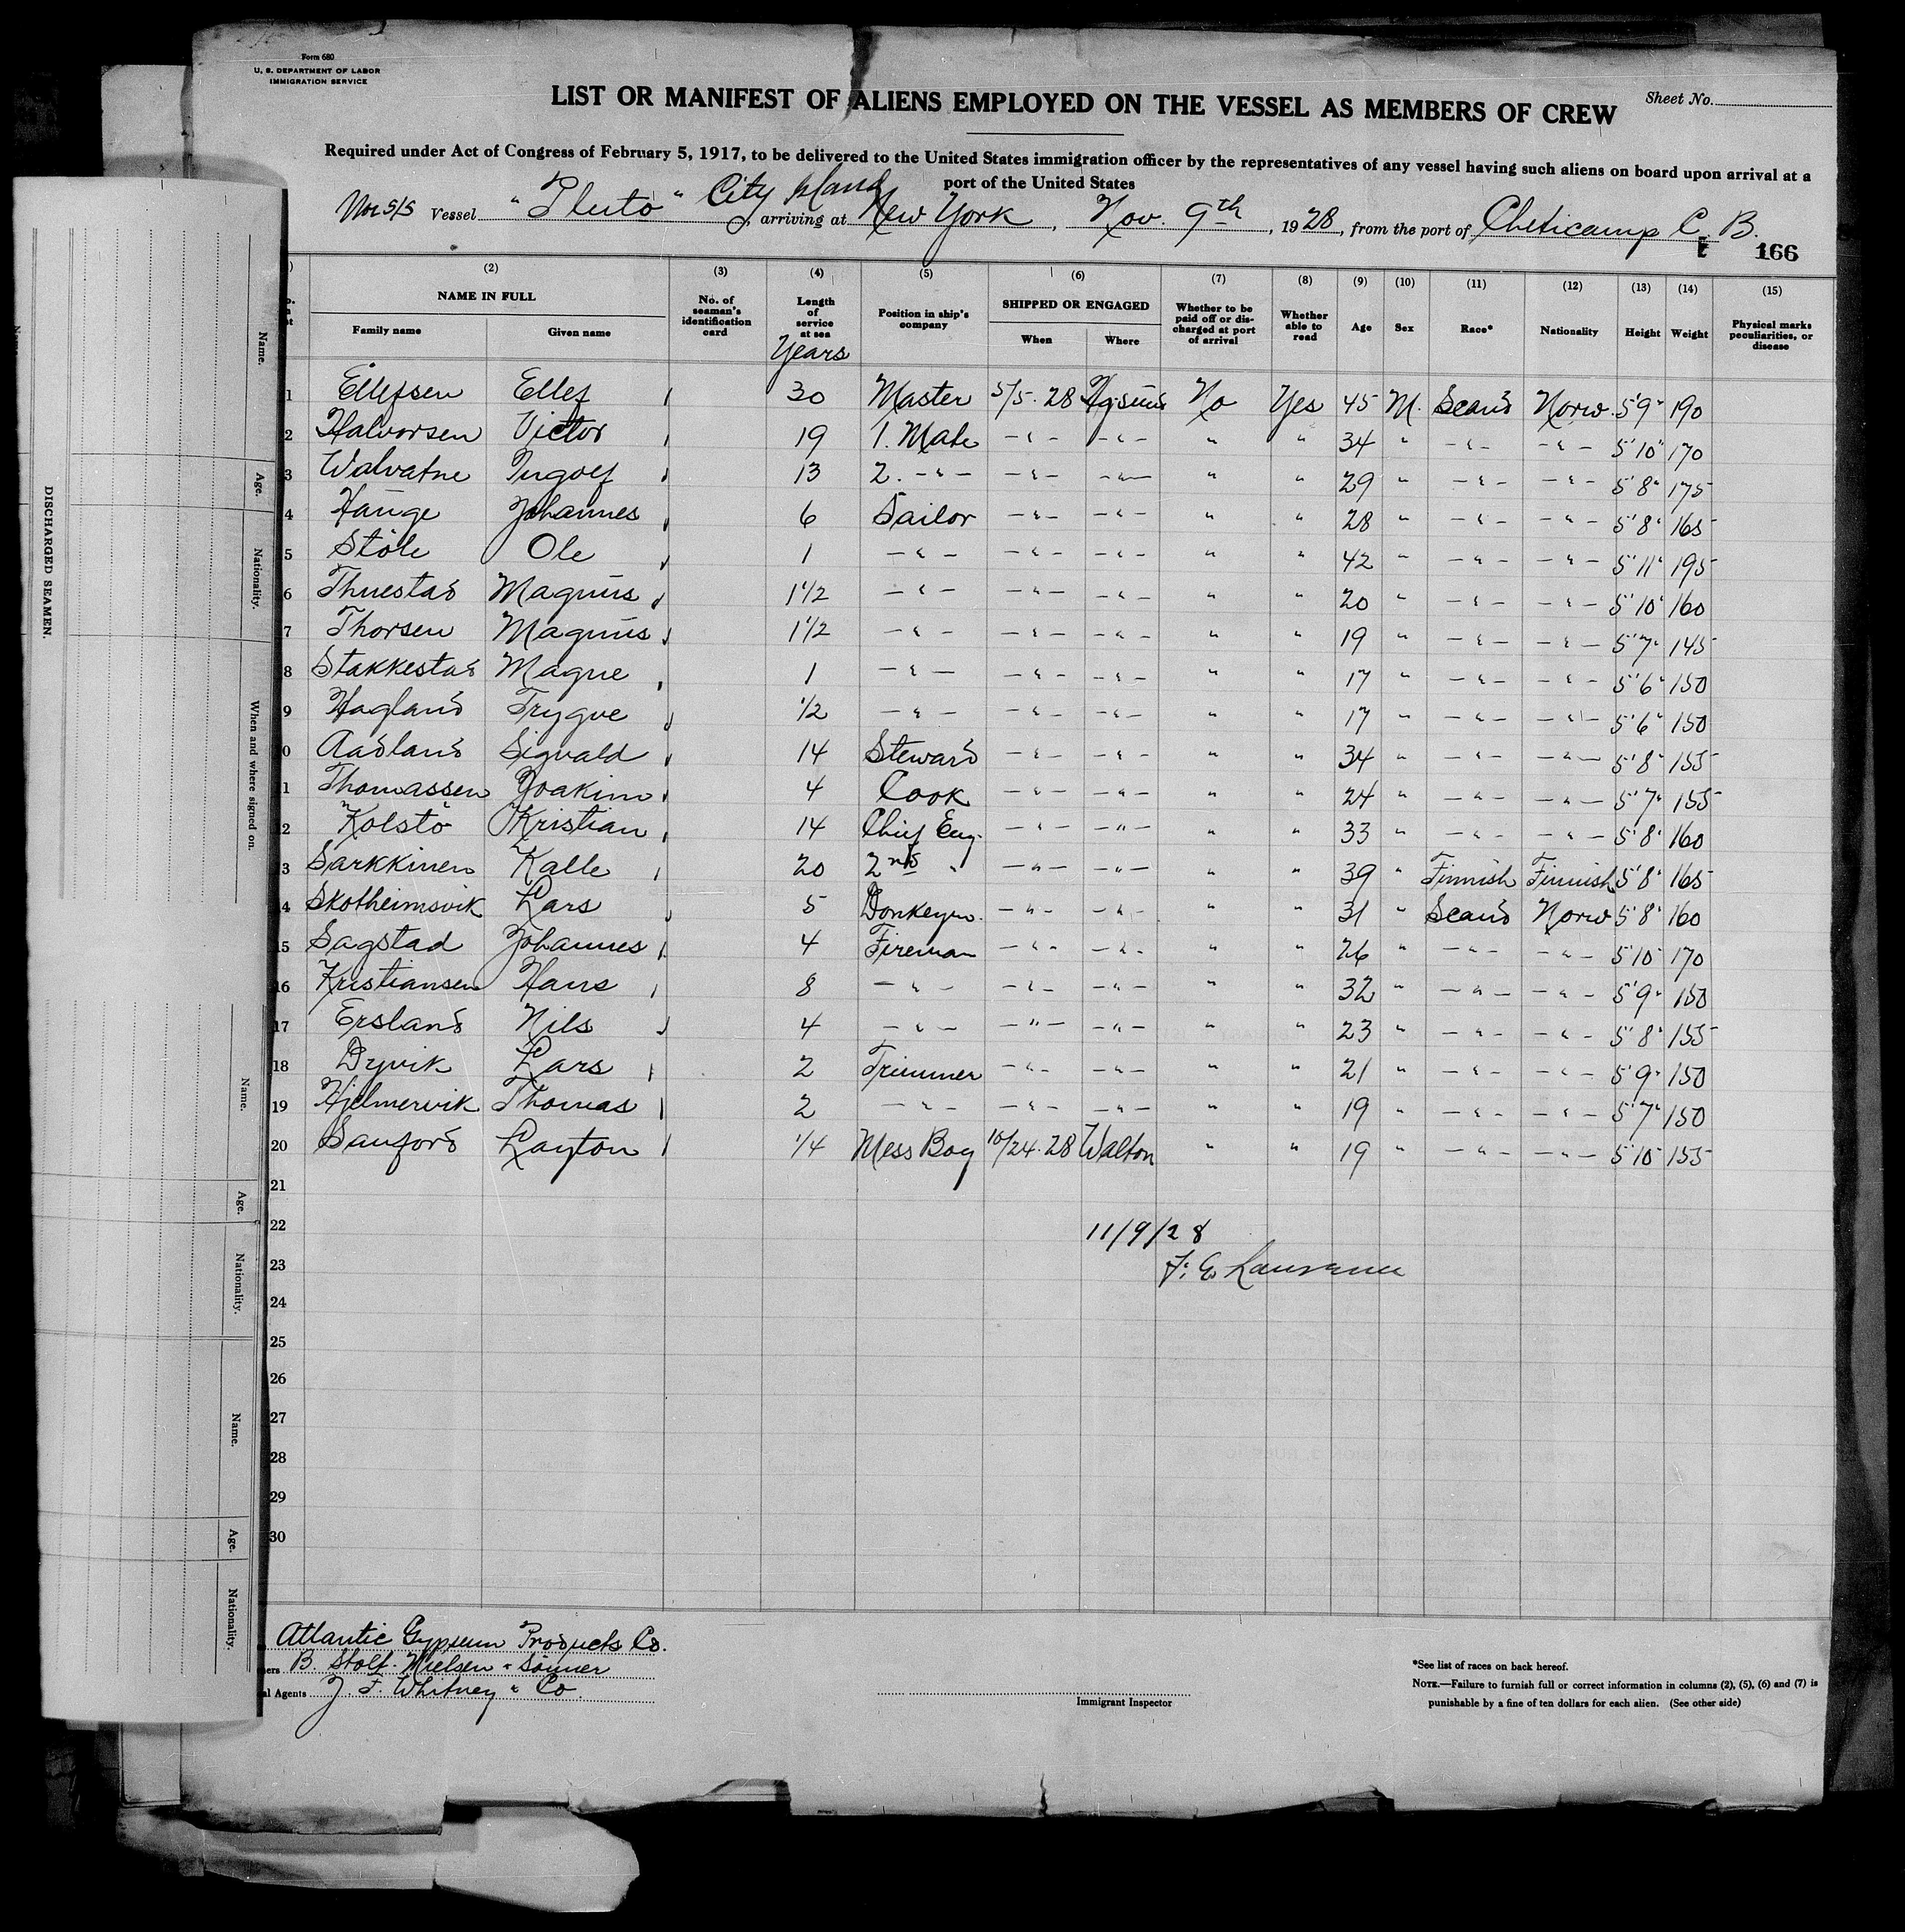 Form 680
U. S. DEPARTMENT OF LABOR
IMMIGRATION SERVICE
Sheet No.
LIST OR MANIFEST OF ALIENS EMPLOYED ON THE VESSEL AS MEMBERS OF CREW
Required under Act of Congress of February 5, 1917, to be delivered to the United States immigration officer by the representatives of any vessel having such aliens on board upon arrival at a
port of the United States
Nor S/S Vessel "Pluto" City Island, arriving at New York, Nov. 9th, 1928, from the port of Cheticamp C. B.
166
(2) (3) (4) (5) (6) (7) (8) (9) (10) (11) (12) (13) (14) (15)
NAME IN FULL
Family name Given name
No. of seaman's identification card
Length of service at sea
Years
Position in ship's company
SHIPPED OR ENGAGED
When Where
Whether to be paid off or discharged at port of arrival
Whether able to read
Age Sex Race* Nationality Height Weight
Physical marks peculiarities, or disease
1 Ellefsen Ellef 30 Master 5/5-28 No Yes 45 M. Scand Norw. 5'9" 190
2 Halvorsen Victor 19 1. Mate -"- -"- " " 34 " -"- -"- 5'10" 170
3 Walvatne Ingolf 13 2. -"- -"- -"- " " 29 " -"- -"- 5'8" 175
4 Hauge Johannes 6 Sailor -"- -"- " " 28 " -"- -"- 5'8" 165
5 Stöle Ole 1 -"- -"- -"- " " 42 " -"- -"- 5'11" 195
6 Thuestad Magnus 1 1/2 -"- -"- -"- " " 20 " -"- -"- 5'10" 160
7 Thorsen Magnus 1 1/2 -"- -"- -"- " " 19 " -"- -"- 5'7" 145
8 Stakkestad Magne 1 -"- -"- -"- " " 17 " -"- -"- 5'6" 150
9 Hagland Trygve 1/2 -"- -"- -"- " " 17 " -"- -"- 5'6" 150
0 Aadland Sigvald 14 Steward -"- -"- " " 34 " -"- -"- 5'8" 155
1 Thomassen Joakim 4 Cook -"- -"- " " 24 " -"- -"- 5'7" 155
2 Kolstö Kristian 14 Chief Eng. -"- -"- " " 33 " -"- -"- 5'8" 160
3 Sarkkinen Kalle 20 2nd " -"- -"- " " 39 " Finnish Finnish 5'8" 165
4 Skotheimsvik Lars 5 Donkeym. -"- -"- " " 31 " Scand Norw 5'8" 160
15 Sagstad Johannes 4 Fireman -"- -"- " " 26 " -"- -"- 5'10" 170
16 Kristiansen Hans 8 -"- -"- -"- " " 32 " -"- -"- 5'9" 150
17 Ersland Nils 4 -"- -"- -"- " " 23 " -"- -"- 5'8" 155
18 Dyvik Lars 2 Trimmer -"- -"- " " 21 " -"- -"- 5'9" 150
19 Hjelmervik Thomas 2 -"- -"- -"- " " 19 " -"- -"- 5'7" 150
20 Sanford Layton 1/4 Mess Boy 10/24-28 Walton " " 19 " -"- -"- 5'10" 155
21
22
11/9/28
23
F. E. Lawrence
24
25
26
27
28
29
30
Atlantic Gypsum Products Co.
ners B. Stolt-Nielsen & Sönner
al Agents J. F. Whitney & Co.
Immigrant Inspector
*See list of races on back hereof.
NOTE.—Failure to furnish full or correct information in columns (2), (5), (6) and (7) is
punishable by a fine of ten dollars for each alien. (See other side)
DISCHARGED SEAMEN.
Name.
Age.
Nationality.
When and where signed on.
Name.
Age.
Nationality.
Name.
Age.
Nationality.